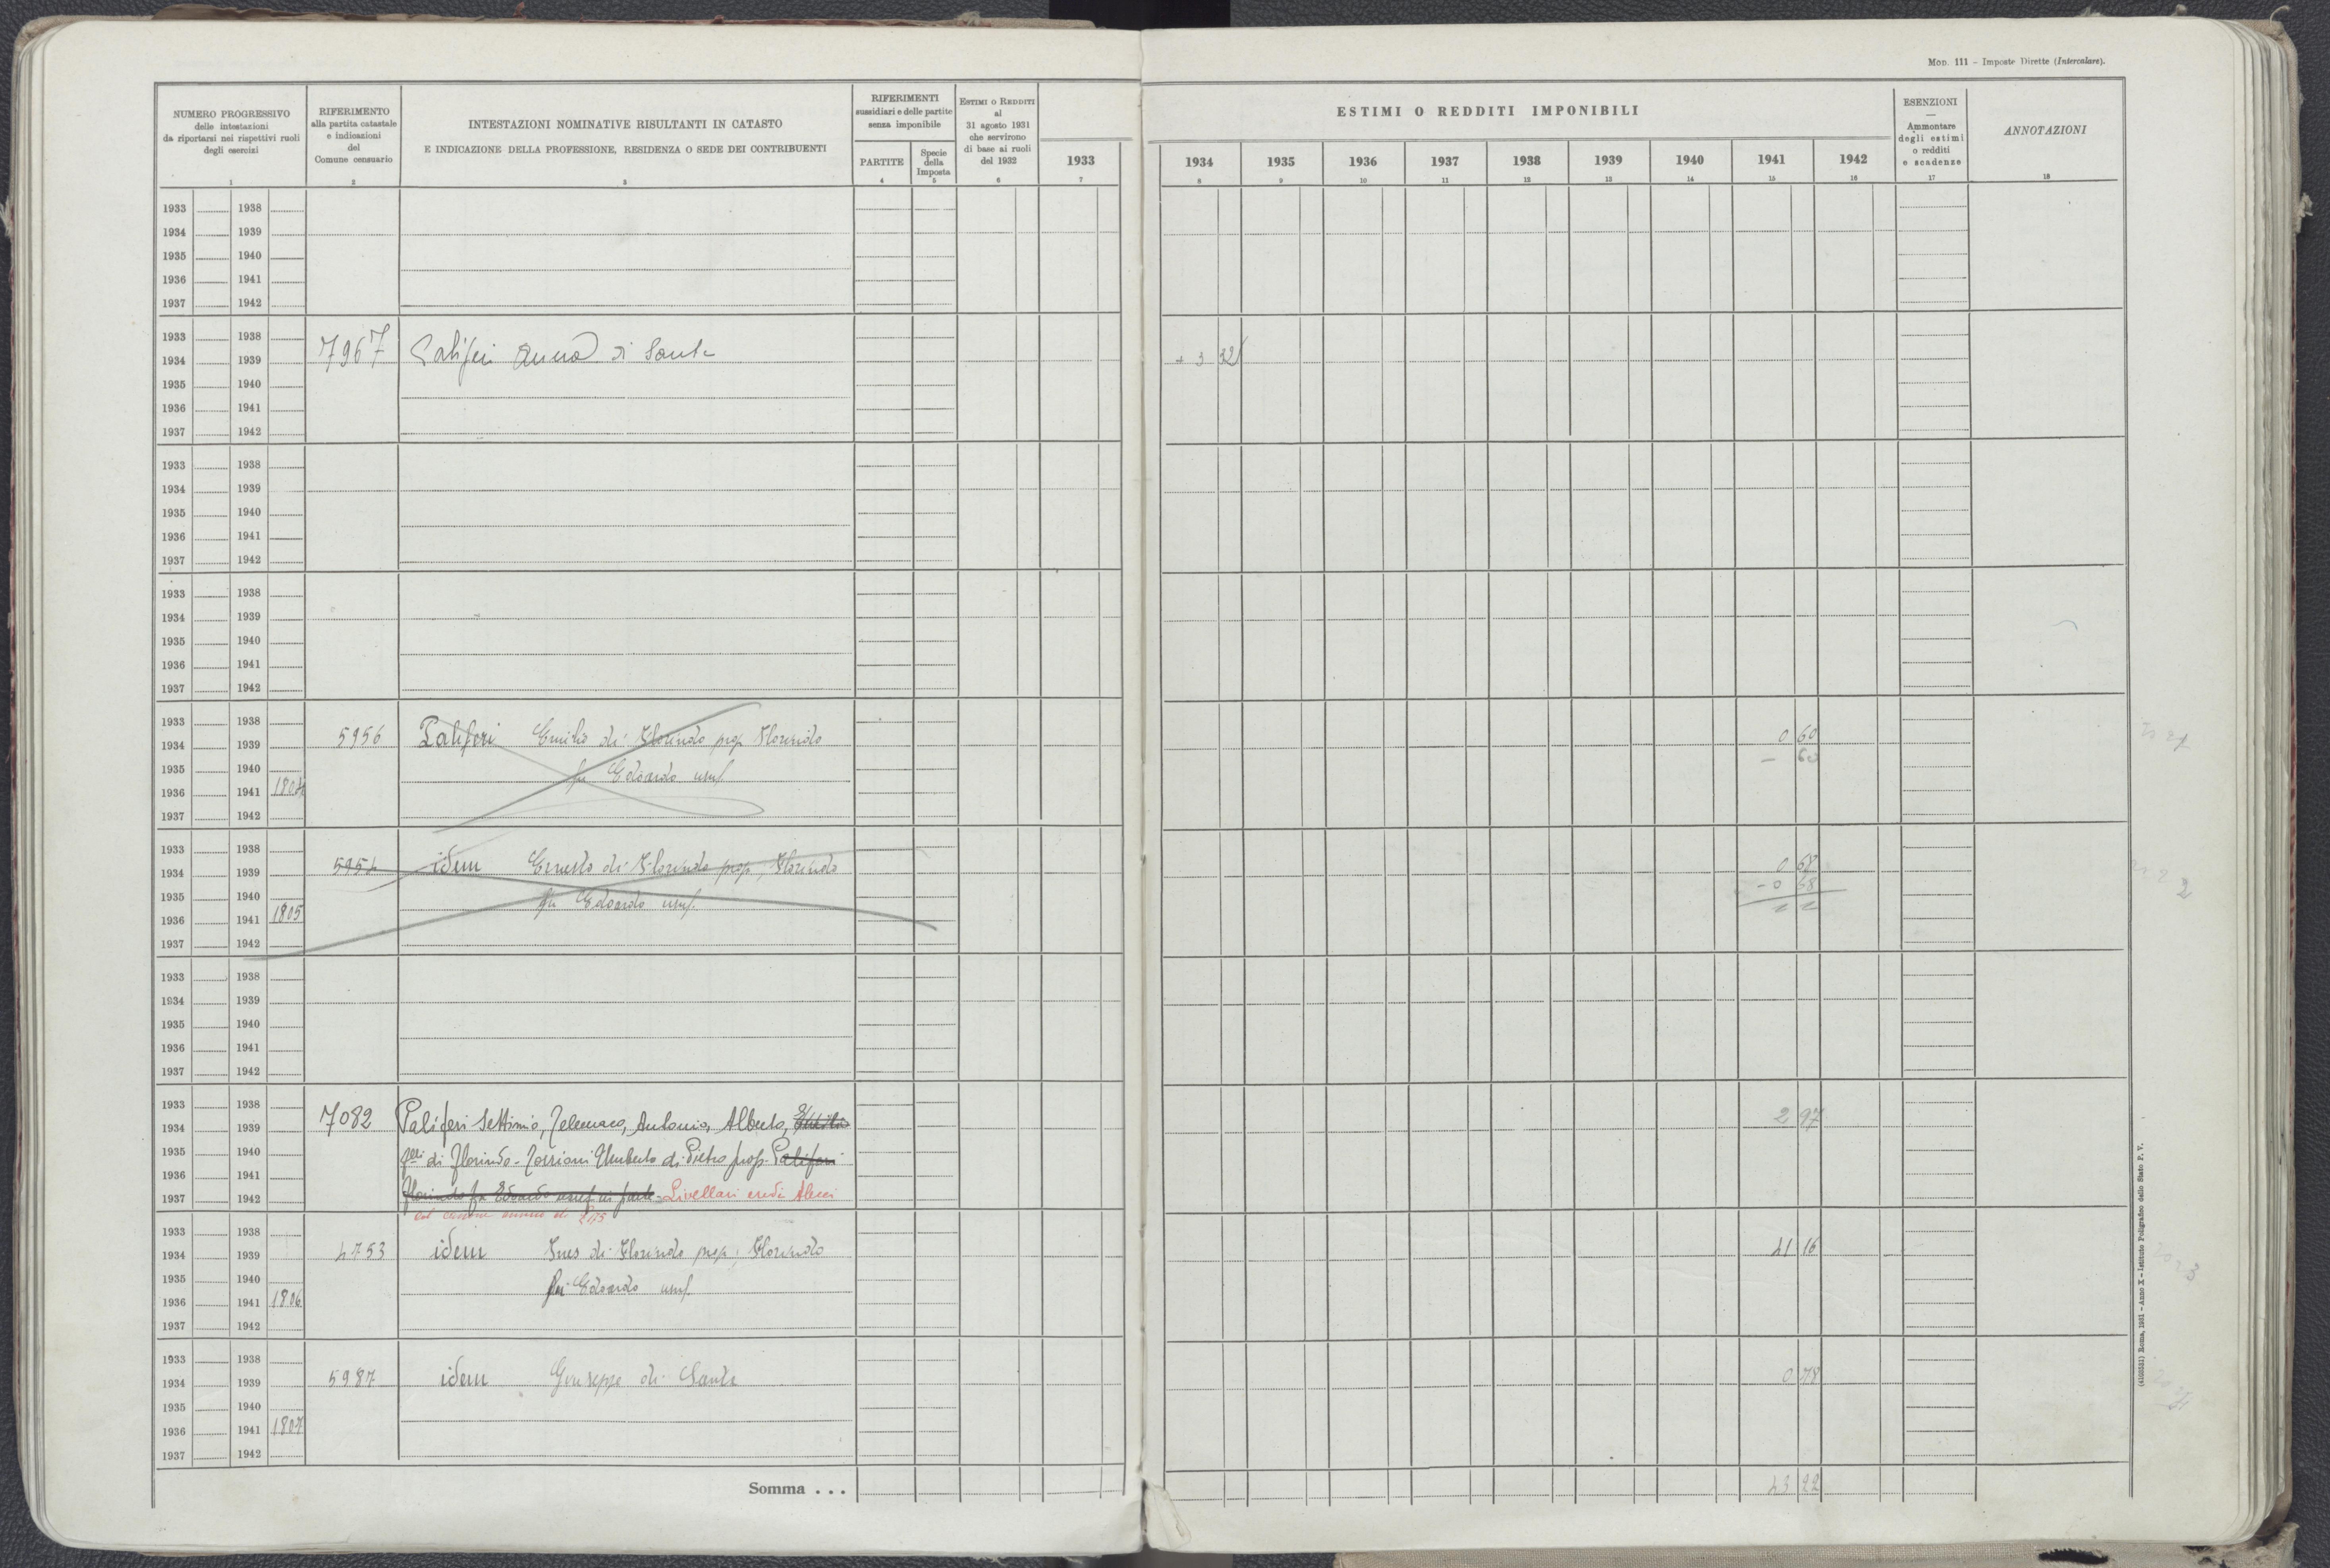 Mod. 111 - Imposte Dirette (Intercalare).
NUMERO PROGRESSIVO
delle intestazioni
da riportarsi nei rispettivi ruoli
degli esercizi
1
RIFERIMENTO
alla partita catastale
e indicazioni
del
Comune censuario
2
INTESTAZIONI NOMINATIVE RISULTANTI IN CATASTO
E INDICAZIONE DELLA PROFESSIONE, RESIDENZA O SEDE DEI CONTRIBUENTI
3
RIFERIMENTI
sussidiari e delle partite
senza imponibile
PARTITE
4
Specie
della
Imposta
5
Estimi o Redditi
al
31 agosto 1931
che servirono
di base ai ruoli
del 1932
6
1933
7
ESTIMI O REDDITI IMPONIBILI
1934 1935 1936 1937 1938 1939 1940 1941 1942
8 9 10 11 12 13 14 15 16
ESENZIONI
Ammontare
degli estimi
o redditi
e scadenze
17
ANNOTAZIONI
18
1933 1938
1934 1939
1935 1940
1936 1941
1937 1942
1933 1938
1934 1939 7967 Paliferi Anna di Sante + 3 32
1935 1940
1936 1941
1937 1942
1933 1938
1934 1939
1935 1940
1936 1941
1937 1942
1933 1938
1934 1939
1935 1940
1936 1941
1937 1942
1933 1938
1934 1939 5956 Paliferi Emilio di Florindo prop Florindo 0 60
1935 1940 fu Edoardo usuf. - 60
1936 1941 1804
1937 1942
1933 1938
1934 1939 idem Ernesto di Florindo prop, Florindo 0 68
1935 1940 fu Edoardo usuf. - 0 68
1936 1941 1805
1937 1942
1933 1938
1934 1939
1935 1940
1936 1941
1937 1942
1933 1938
1934 1939 7082 Paliferi Settimio, Telemaco, Antonio, Alberto, 2 97
1935 1940 f.lli di Florindo - Torrioni Umberto di Pietro prop. Paliferi
1936 1941
1937 1942 Florindo fu Edoardo usuf in parte - Livellari eredi Alecci
col canone annuo di
1933 1938
1934 1939 4753 idem Ines di Florindo prop, Florindo 41 16
1935 1940 fu Edoardo usuf.
1936 1941 1806
1937 1942
1933 1938
1934 1939 5987 idem Giuseppe di Sante 0 78
1935 1940
1936 1941 1807
1937 1942
Somma . . . 43 22
(4105531) Roma, 1931 - Anno X - Istituto Poligrafico dello Stato P. V.